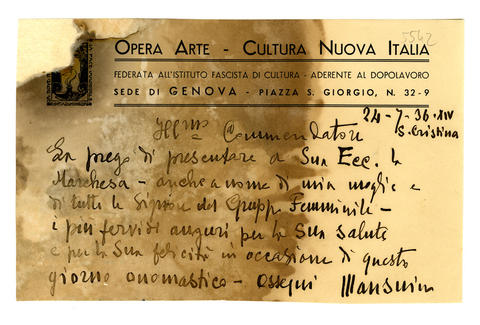 5562
OPERA ARTE - CULTURA NUOVA ITALIA
FEDERATA ALL'ISTITUTO FASCISTA DI CULTURA - ADERENTE AL DOPOLAVORO
SEDE DI GENOVA - PIAZZA S. GIORGIO, N. 32-9
24-7-36-XIV
S. Cristina
Ill.mo Commendatore
La prego di presentare a Sua Ecc. la
Marchesa - anche a nome di mia moglie e
di tutte le Signore del Gruppo Femminile -
i più fervidi auguri per la Sua salute
e per la Sua felicità in occasione di questo
giorno onomastico - ossequi